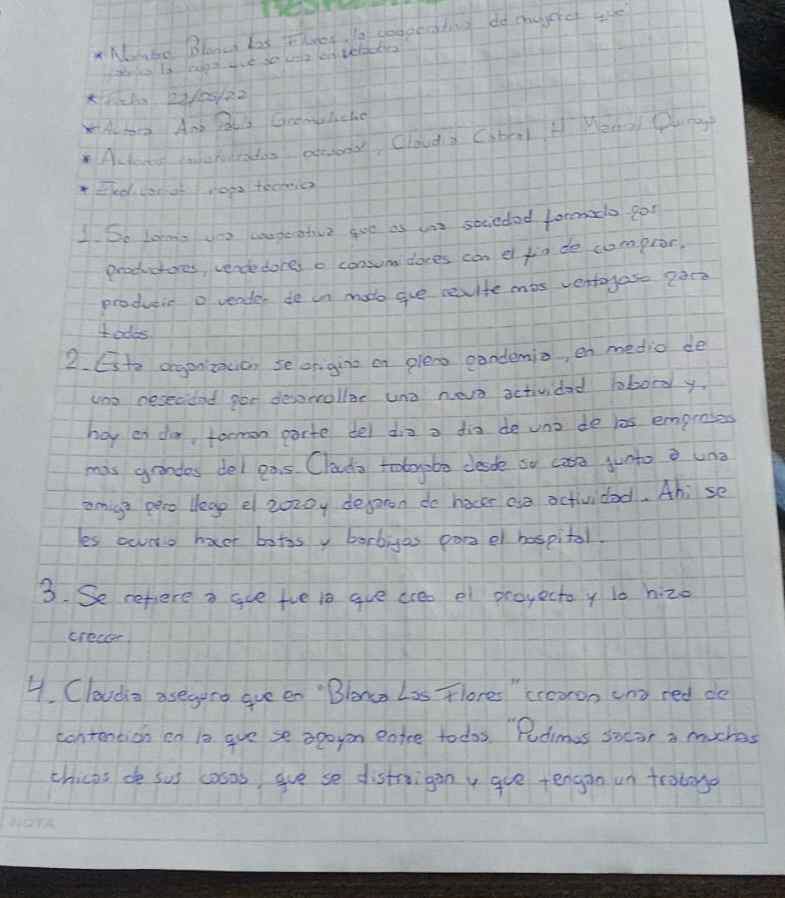 * Nombre Blanca Las Flores, la cooperativa de mujeres que
la ropa que se usa en
* Fecha 22/05/22
* Autora Ana Paula
* Actores involucrados Claudia Cabral, 4
* ropa tecnica
1. Se forma una cooperativa que es una sociedad formado por
productores, vendedores o consumidores con el fin de comprar,
producir o vender de un modo que resulte mas ventajoso para
todos.
2. Esta organizacion se origino en plena pandemia, en medio de
una nesecidad por desarrollar una nueva actividad laboral y,
hoy en dia, forman parte del dia a dia de una de las empresas
mas grandes del pais. Claudia trabajaba desde su casa junto a una
amiga pero llego el 2020 y dejaron de hacer esa actividad. Ahi se
les ocurrio hacer batas y barbijos para el hospital.
3. Se refiere a que fue la que creo el proyecto y lo hizo
crecer.
4. Claudia aseguro que en "Blanca Las Flores" crearon una red de
contención en la que se apoyan entre todas. "Pudimos sacar a muchas
chicas de sus casas, que se distraigan y que tengan un trabajo
NOTA